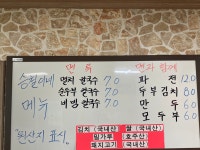 승칼이네
메뉴
"원산지 표시"
면 류
멸치 칼국수 7.0
순두부 칼국수 7.0
비빔 칼국수 7.0
면과 함께
파전 12.0
두부김치 8.0
만두 6.0
모두부 6.0
김치 (국내산) 쌀 (국내산)
밀가루 (호주산)
돼지고기 (국내산)